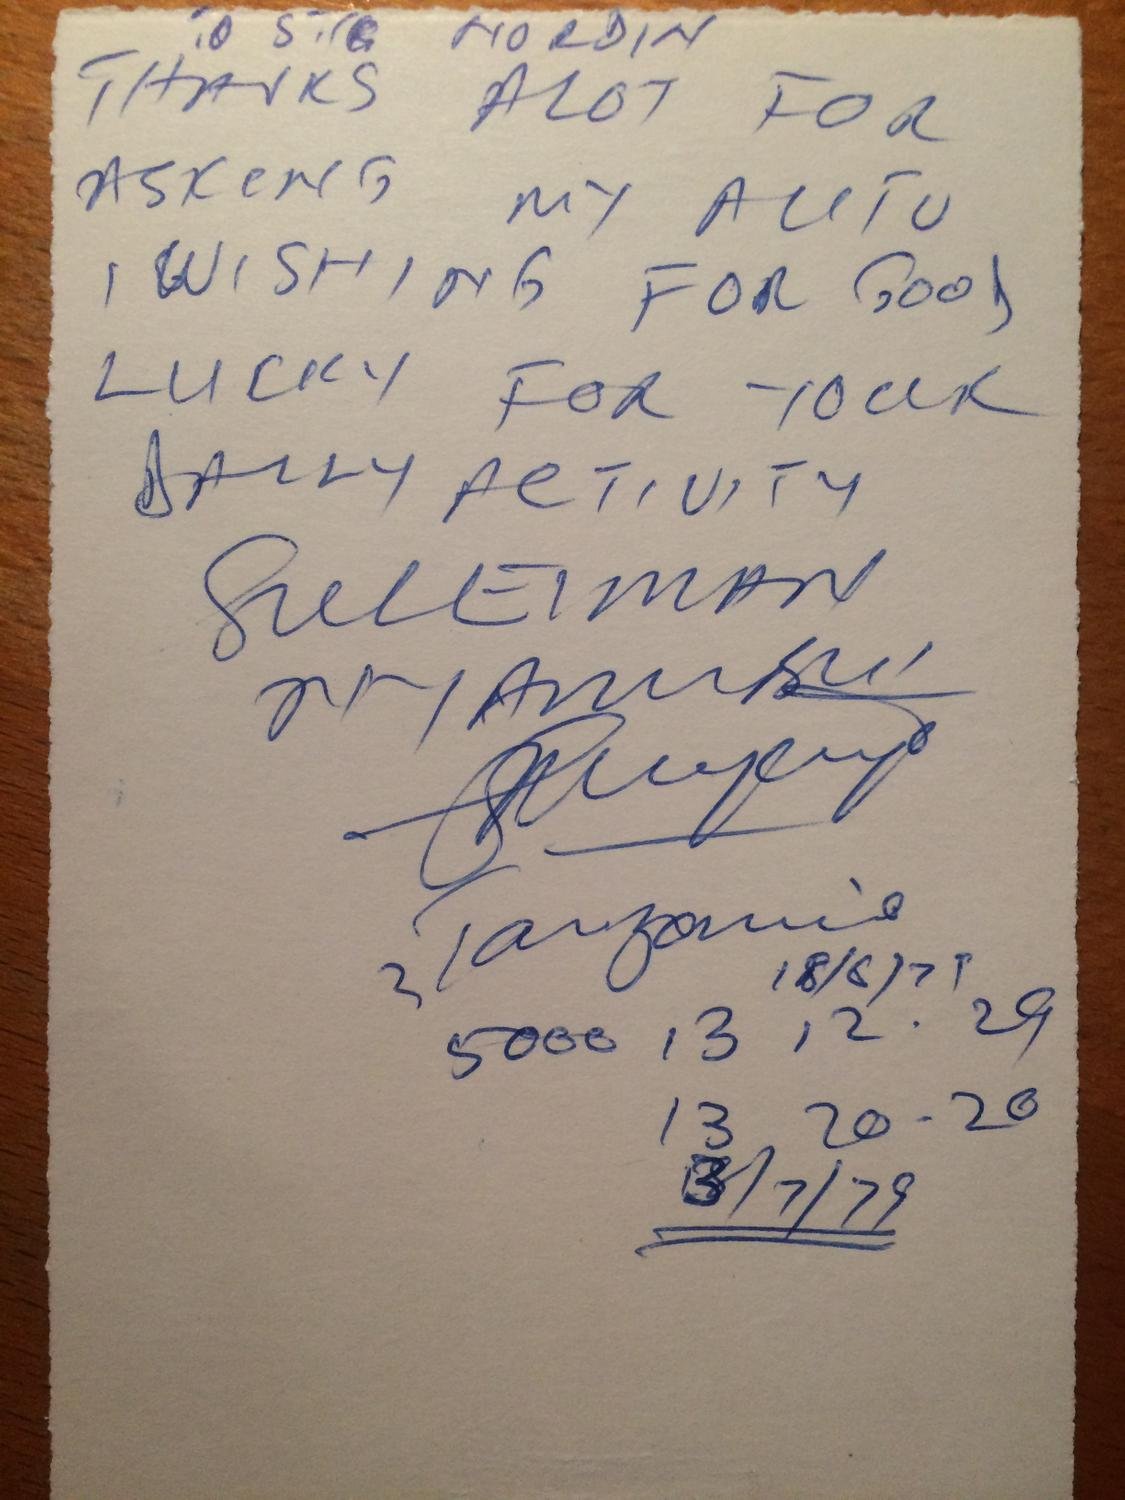 TO STIG NORDIN
THANKS ALOT FOR
ASKING MY AUTO
I WISHING FOR GOOD
LUCKY FOR YOUR
DAILY ACTIVITY
SULEIMAN
NYAMBUI
Tanzania
5000 13 12.29
13 20-20
13/7/79